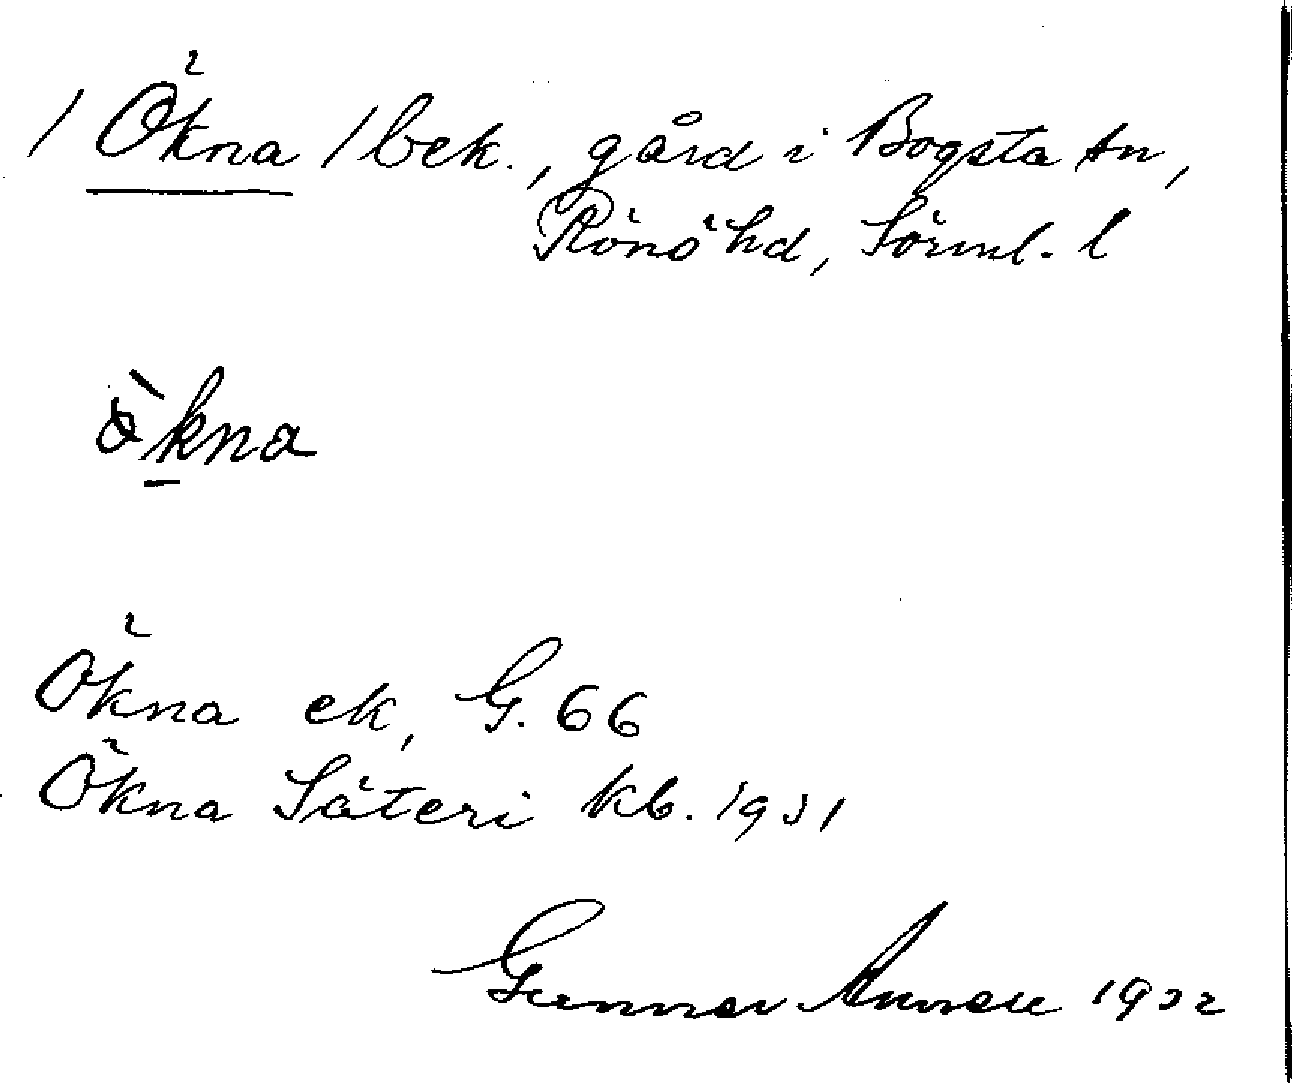 / Ökna / bek., gård i Bogsta sn,
Rönö hd, Sörml. l
ö̀kna
Ökna ek, G. 66
Ökna Säteri kb. 1931
Gunnar 1932